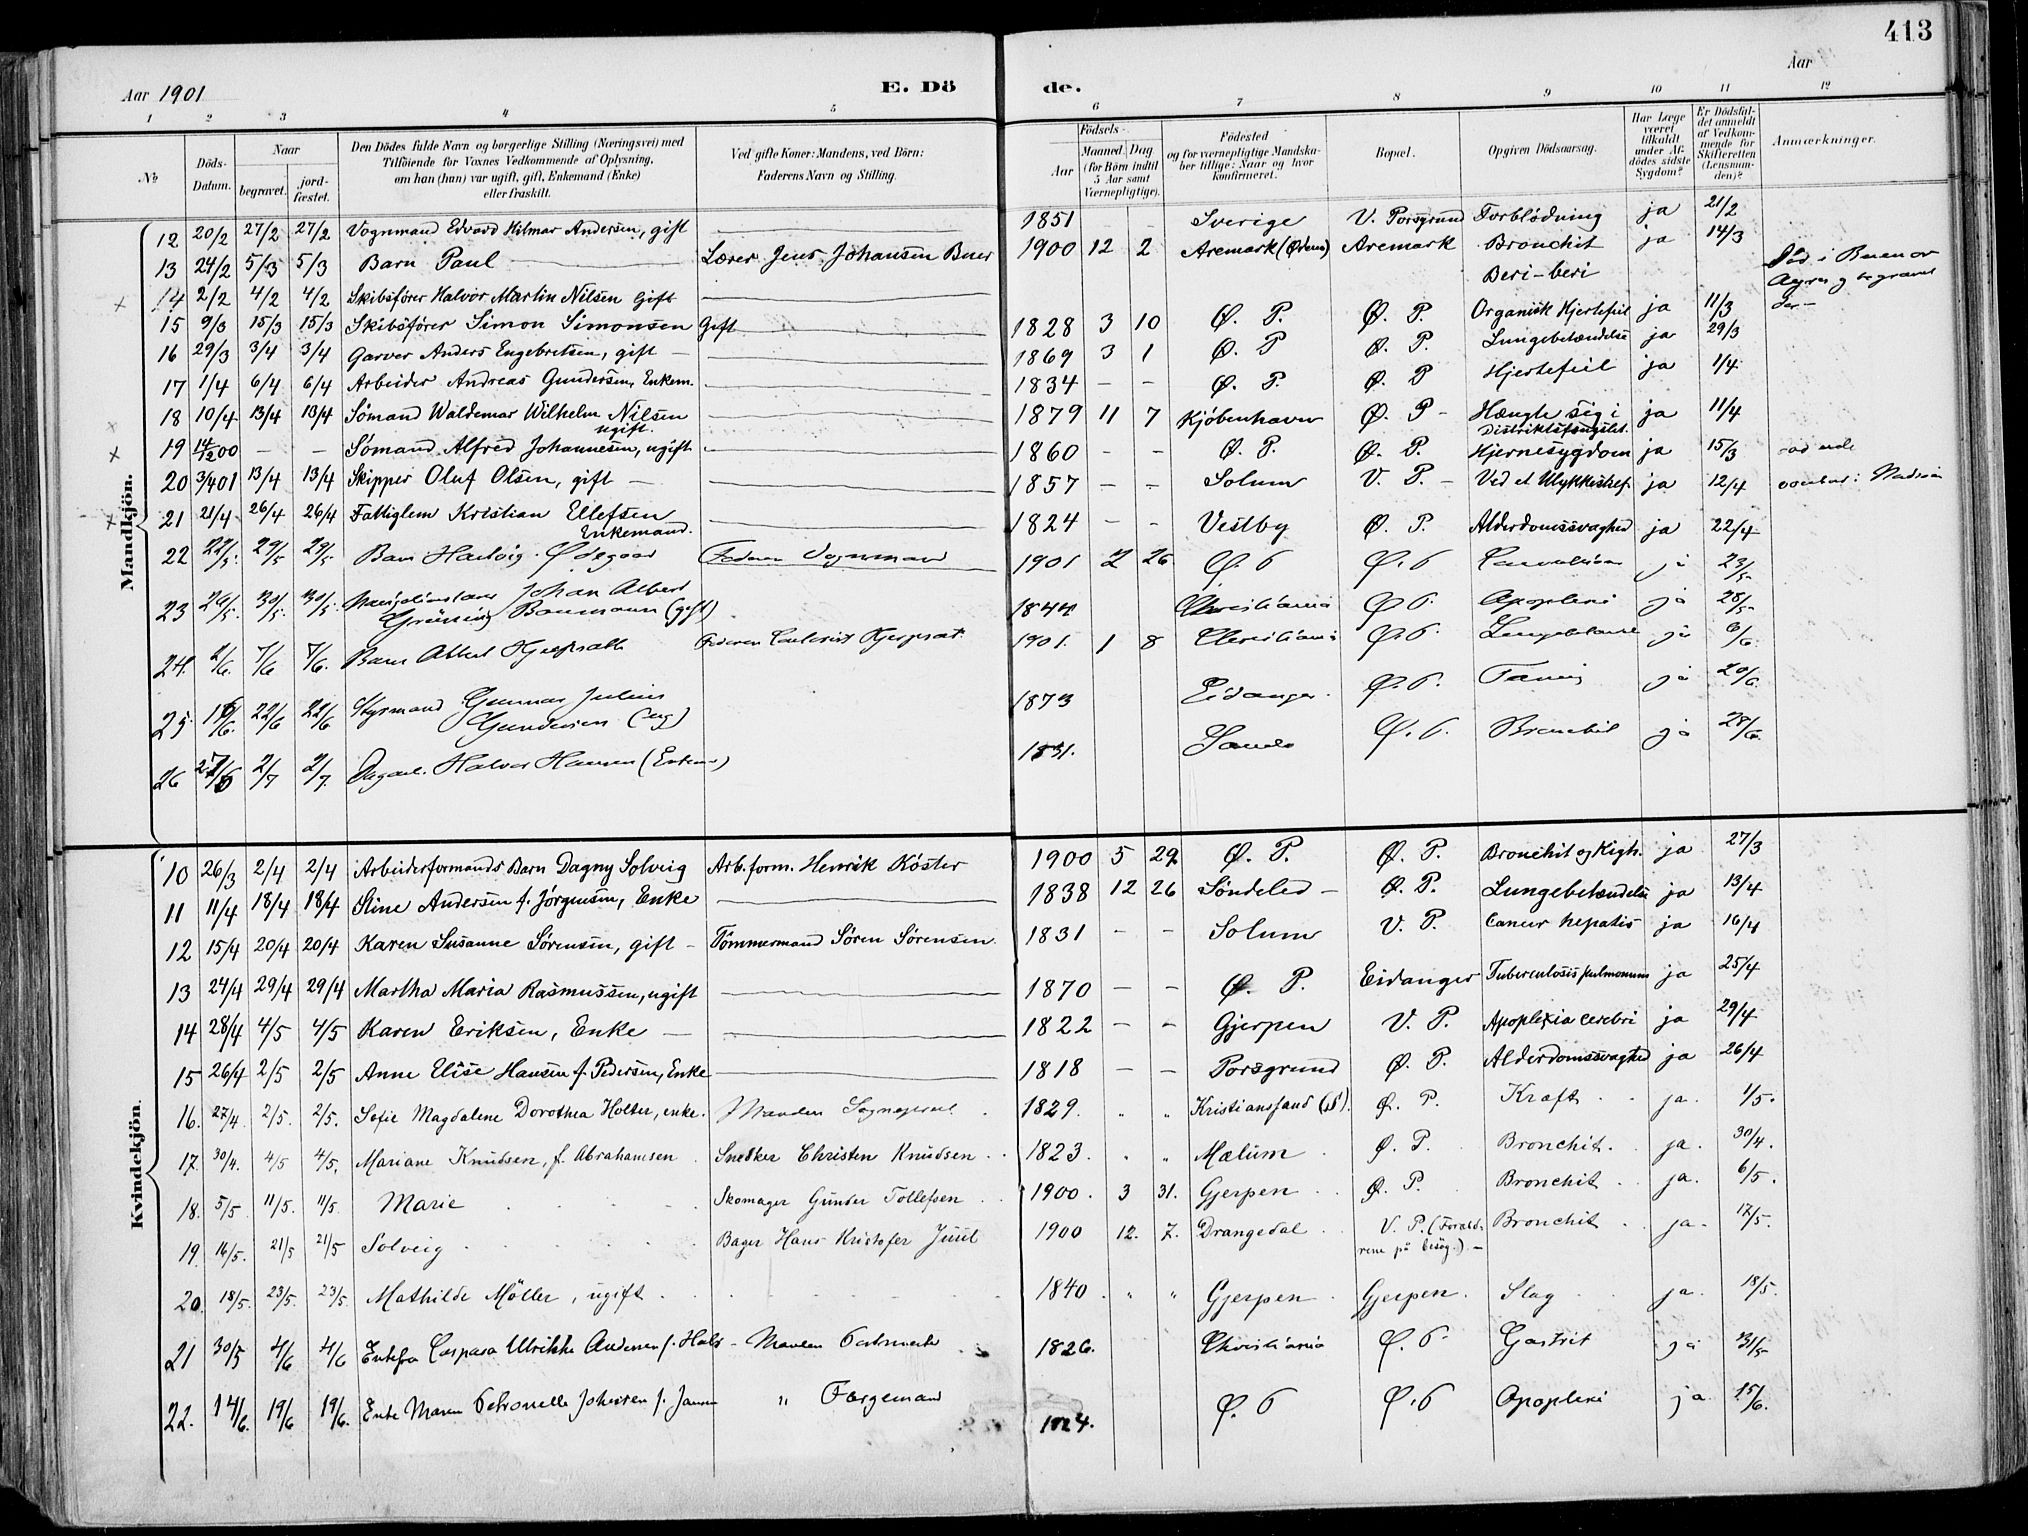 413
Aar 1901
E. Dö
de.
Aar
1 2 3 4 5 6 7 8 9 10 11 12
No
Döds-Datum.
Naar
begravet.
jord-fæstet.
Den Dödes fulde Navn og borgerlige Stilling (Næringsvei) med
Tilföiende for Voxnes Vedkommende af Oplysning,
om han (hun) var ugift, gift, Enkemand (Enke)
eller fraskilt.
Ved gifte Koner: Mandens, ved Börn:
Faderens Navn og Stilling.
Födsels-
Aar
Maaned. Dag
(for Börn indtil
5 Aar samt
Værnepligtige).
Födested
og for værnepligtige Mandska-
ber tillige: Naar og hvor
konfirmeret.
Bopæl.
Opgiven Dödsaarsag.
Har Læge
været
tilkaldt
under Af-
dödes sidste
Sygdom?
Er Dödsfal-
det anmeldt
af Vedkom-
mende for
Skifteretten
(Lensman-
den)?
Anmærkninger.
Mandkjön.
12 20/2 27/2 27/2 Vognmand Edvard Hilmar Andersen, gift 1851 - Sverige V. Porsgrund Forblödning ja 21/2
13 24/2 5/3 5/3 Barn Paul Lærer Jens Johansen Buer 1900 12 2 Aremark (Ödem) Aremark Bronchit ja 14/3
14 2/2 4/2 4/2 Skibsförer Halvor Martin Nilsen Gift Beri-beri Död i Buenos Ayres og begravet der -
15 9/3 15/3 15/3 Skibsförer Simon Simonsen Gift 1828 3 10 Ø. P. Ø. P. Organisk Hjertefeil ja 11/3
16 29/3 3/4 3/4 Garver Anders Engebretsen, gift 1869 3 1 Ø. P Ø. P. Lungebetændelse ja 29/3
17 1/4 6/4 6/4 Arbeider Andreas Gundersen, Enkem. 1834 - - Ø. P. Ø. P Hjertefeil ja 1/4
18 10/4 13/4 13/4 Sömand Waldemar Wilhelm Nilsen ugift. 1879 11 7 Kjöbenhavn Ø. P - Hængte sig i Distriktsfængslet. ja 11/4
19 14/2 00 - - Sömand Alfred Johannesen, ugift 1860 - - Ø. P. Ø. P. Hjernesygdom ja 15/3
20 3/4 01 13/4 13/4 Skipper Oluf Olsen, gift 1857 - - Solum V. P. - Ved et Ulykkestilf. ja 12/4
21 21/4 26/4 26/4 Fattiglem Kristian Ellefsen Enkemand. 1824 - - Vestby Ø. P. Alderdomssvaghed ja 22/4
22 22/5 29/5 29/5 Barn Hartvig Ödegaard Faderen Vognmand 1901 2 26 Ø. P Ø. P ja 23/5
23 26/5 30/5 30/5 Johan Albert Grüning Baumann (gift) 1844 Christiania Ø P. Apoplexi ja 28/5
24. 2/6. 7/6 7/6. Barn Albert 1901. 1 8 Christiania Ø. P. Lungebetændelse ja 6/6.
25 16/6. 22/6 22/6 Styrmand Gunnar Julius Gundersen (ug) 1873 Eidanger Ø. P. Tæring ja 20/6.
26 27/6 2/7 2/7. Dagarb. Halvor Hansen (Enkem) 1831. Ø. P. Bronchit ja 28/6.
Kvindekjön.
10 26/3 2/4 2/4 Arbeiderformands Barn Dagny Solveig Arb.form. Henrik Köster 1900 5 29 Ø. P. Ø. P. Bronchit og Kigh. ja 27/3
11 11/4 18/4 18/4 Stine Andersen f. Jörgensen, Enke 1838 12 26 Söndeled - Ø. P. Lungebetændelse ja 13/4
12 15/4 20/4 20/4 Karen Susanne Sörensen, gift - Tömmermand Sören Sörensen. 1831 - - Solum V. P. Cancer hepatis ja 16/4
13 24/4 29/4 29/4 Martha Maria Rasmussen, ugift 1870 - - Ø. P. Eidanger Tuberculosis pulmonum ja 25/4
14 28/4 4/5 4/5 Karen Eriksen, Enke 1822 - - Gjerpen V. P. Apoplexia cerebri ja 29/4
15 26/4 2/5 2/5 Anne Elise Hansen f. Pedersen, Enke 1818 - - Porsgrund Ø. P. Alderdomssvaghed ja 26/4
16. 27/4 2/5. 2/5. Sofie Magdalene Dorothea Holter, enke. Manden Sogneprest 1829. " " Kristianssand (S). Ø. P. Kræft ja. 1/5.
17. 30/4. 4/5 4/5. Mariane Knudsen, f. Abrahamsen Snedker Christen Knudsen 1823. " " Mælum Ø. P. Bronchit. ja. 30/4.
18. 5/5 11/5. 11/5. Marie Skomager Gunder Tollefsen 1900. 3 31. Gjerpen Ø. P. Bronchit ja. 6/5.
19. 16/5. 21/5 21/5 Solveig Bager Hans Kristofer Juul 1900 12. 7. Drangedal V. P. (Foræld-rene på besög.). - Bronchit ja. 17/5.
20. 18/5. 23/5. 23/5. Mathilde Möller, ugift 1840. " " Gjerpen Gjerpen. Slag ja. 18/5.
21 30/5 4/6 4/6 Enkefru Caspara Ulrikke Andersen f. Hals - Manden 1826. Christiania Ø. P. Gastrit ja 31/5
22. 14/6. 19/6 19/6. Enke Maren Petronelle f. Jansen " Færgemand 1824. Ø. P Ø. P Apoplexi ja 15/6.